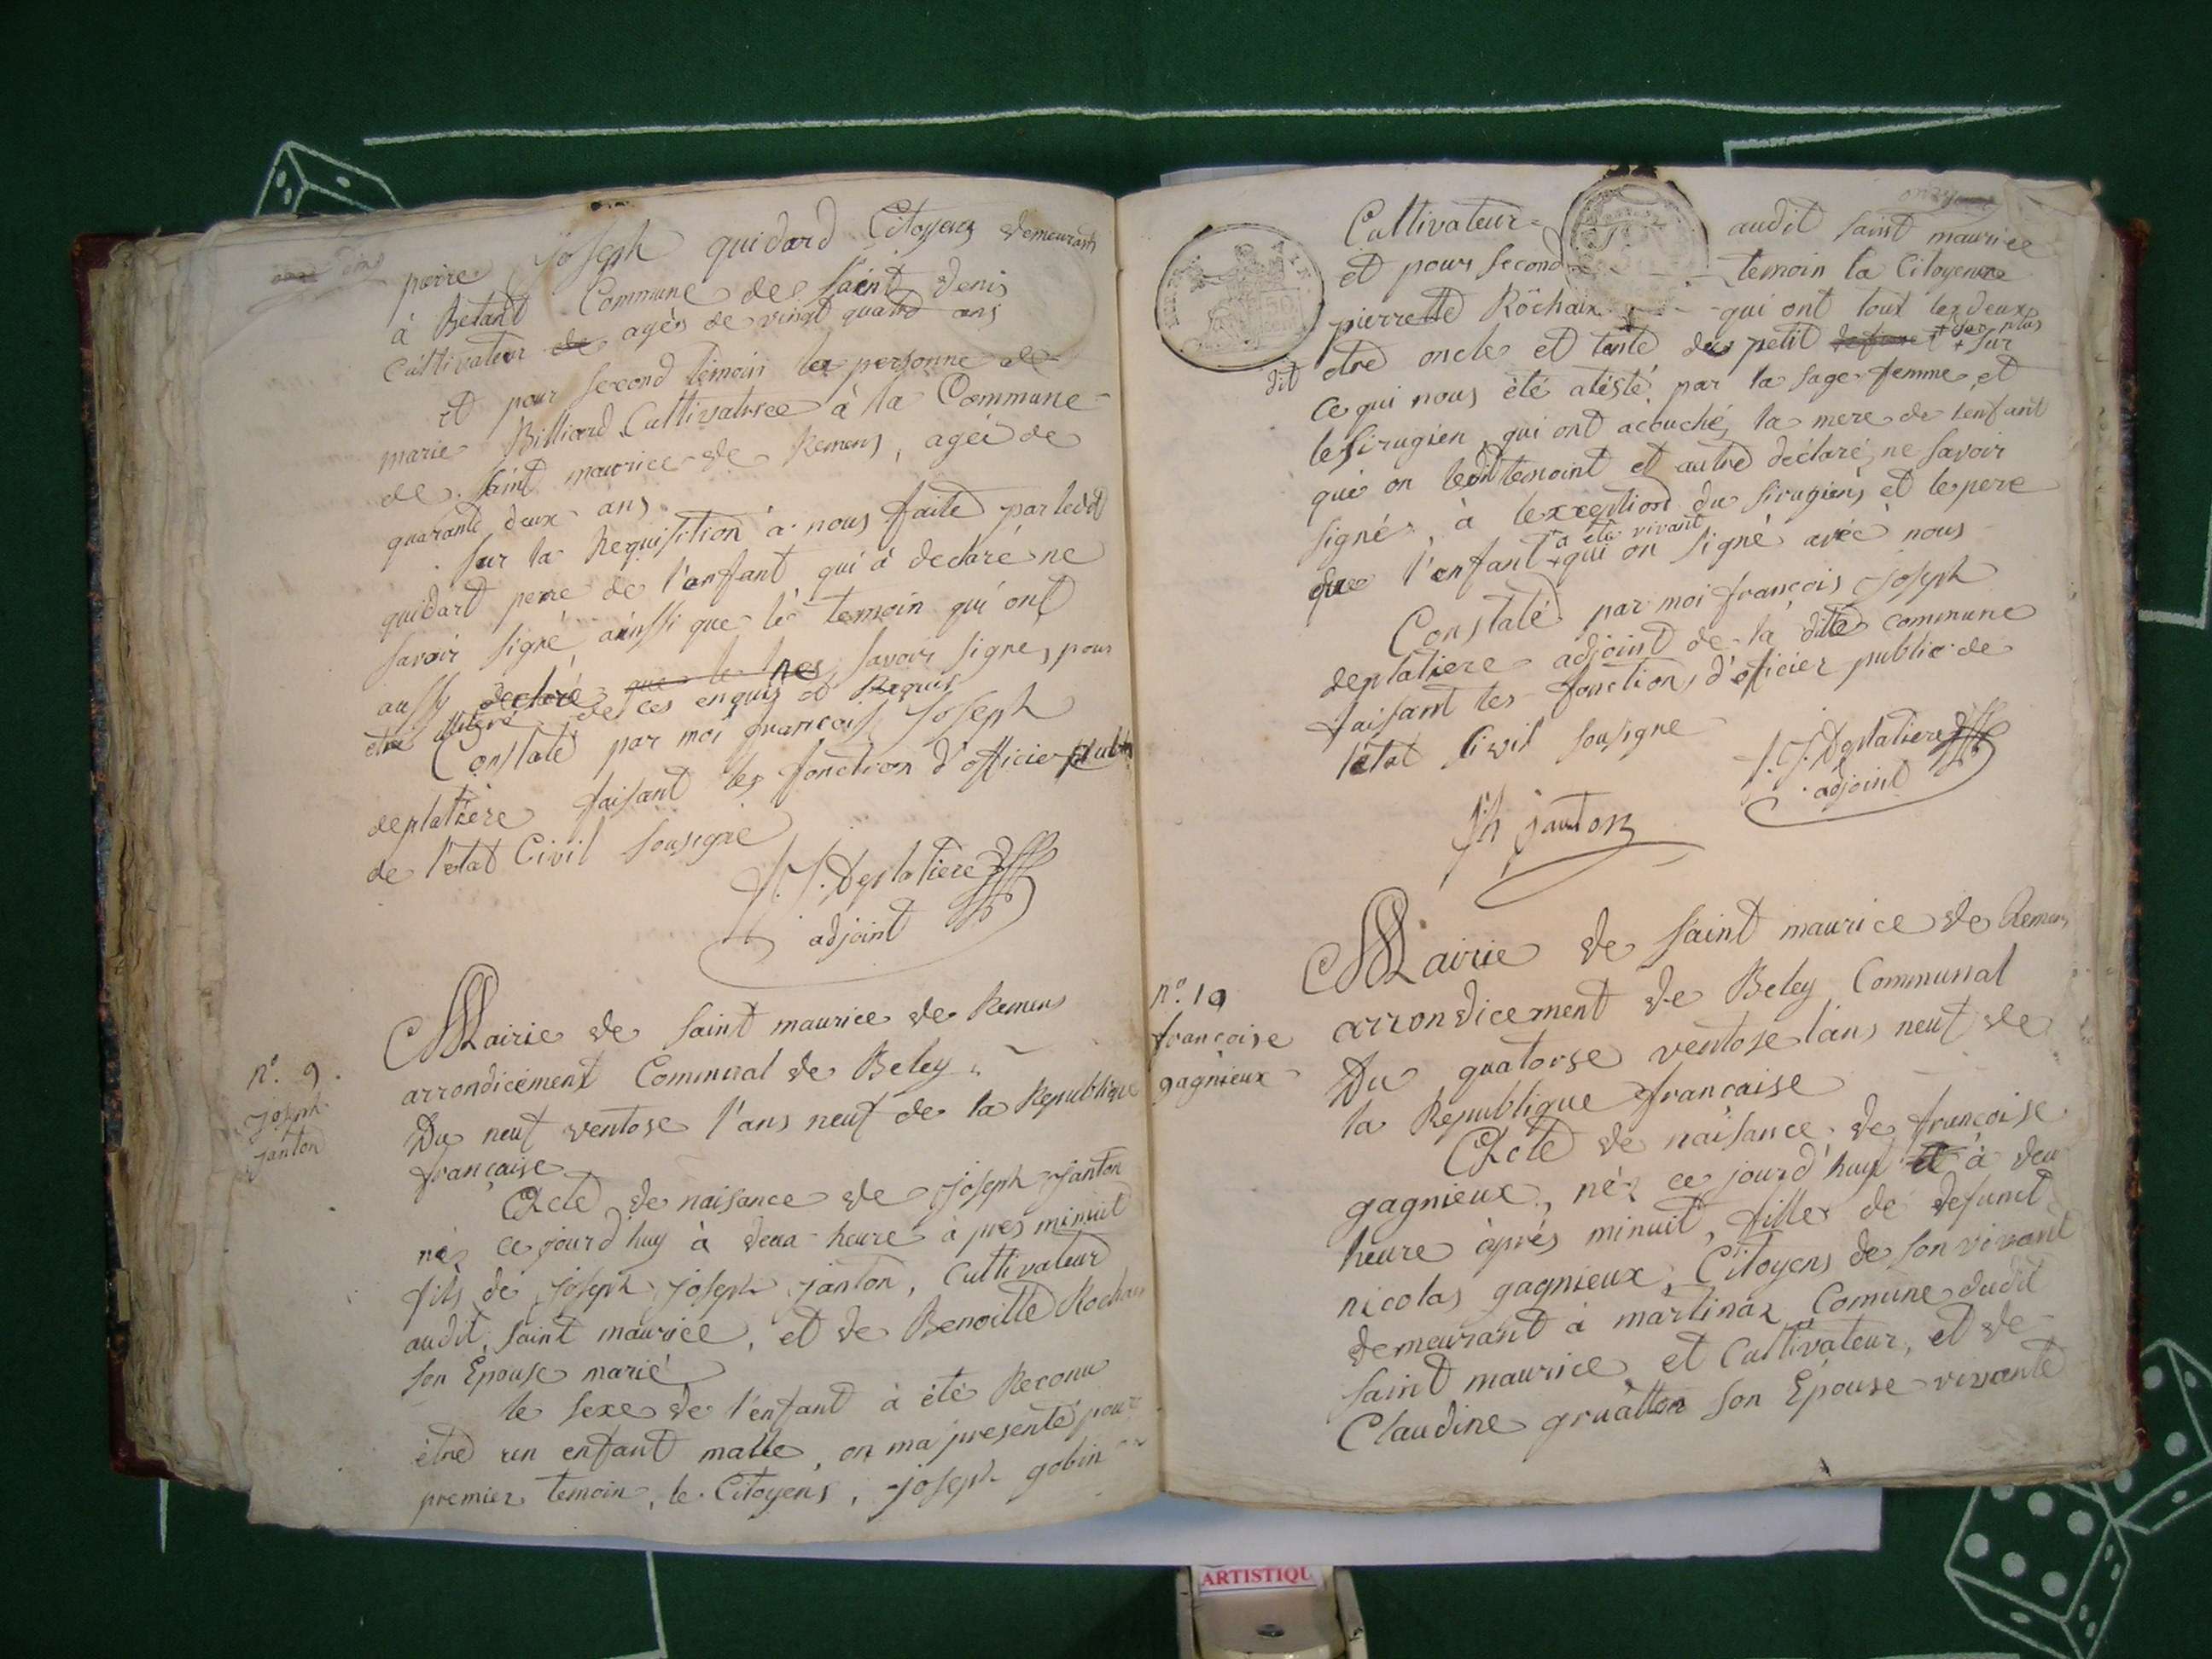 pierre joseph quidard Citoyens demeurant
à Betant Commune de Saint denis
Cultivateur de agès de vingt quatre ans
et pour second temoin la personne de
marie Billiard Cultivatrice à la Commune
de Saint maurice de Remens, agéi de
quarante deux ans.
Sur la Requisition à nous faite par ledit
quidart perre de l'enfant qui à declaré ne
savoir signé, ainssi que lé temoin qui ont
aussy declaré que le nes savoir signe, pour
etre de ces enquis et Requis
Constaté par moi françois Joseph
deplatière faisant les fonction d'officier public
de l'etat Civil sousigne
f. J. Deplatiere
adjoint
n°. 9.
joseph
janton
Mairie de Saint maurice de Remens
arrondicement Communal de Beley
Du neuf ventose l'ans neuf de la Republique
française
Acte de naisance de joseph janton
nés ce jourd'huy à deua heure à pres minuit
fils de joseph joseph janton, Cultivateur
audit Saint maurice, et de Benoitte Rochaix
son Epouse marié
le sexe de l'enfant à été Reconu
être un enfant malle, on ma presenté pour
premier temoin, le Citoyens, joseph gobin
Cultivateur audit Saint maurice
et pour second temoin la Citoyenne
pierrette Rôchaix qui ont tout les deux
dit etre oncle et tante du petit
ce qui nous été atésté par la sage femme et
le sirugien, qui ont acouché la mere de lenfant
qui on ledit temoint et autre déclaré ne savoir
signé, à lexxeption du sirugiens et le pere
+ a été vivant
que l'enfant + qui on signé avéc nous
Constaté par moi françois joseph
deplatiere adjoint de la dite commune
faisant les fonctions d'oficier public de
létat Civil sousigne
f. J. Deplatiere
adjoint
Jh janton
n°. 10
françoise
gagnieux
Mairie de Saint maurice de Remens
arrondicement de Beley Communal
Du quatorse ventose l'ans neuf de
la Republique française
Acte de naisance de françoise
gagnieux, nés ce jourd'huy et à deu
heure après minuit, fille de defunct
nicolas gagnieux, Citoyens de son vivant
demeurant à martinaz Comune dudit
Saint maurice et Cultivateur, et de
Claudine gruatton son Epouse vivante
ARTISTIQU